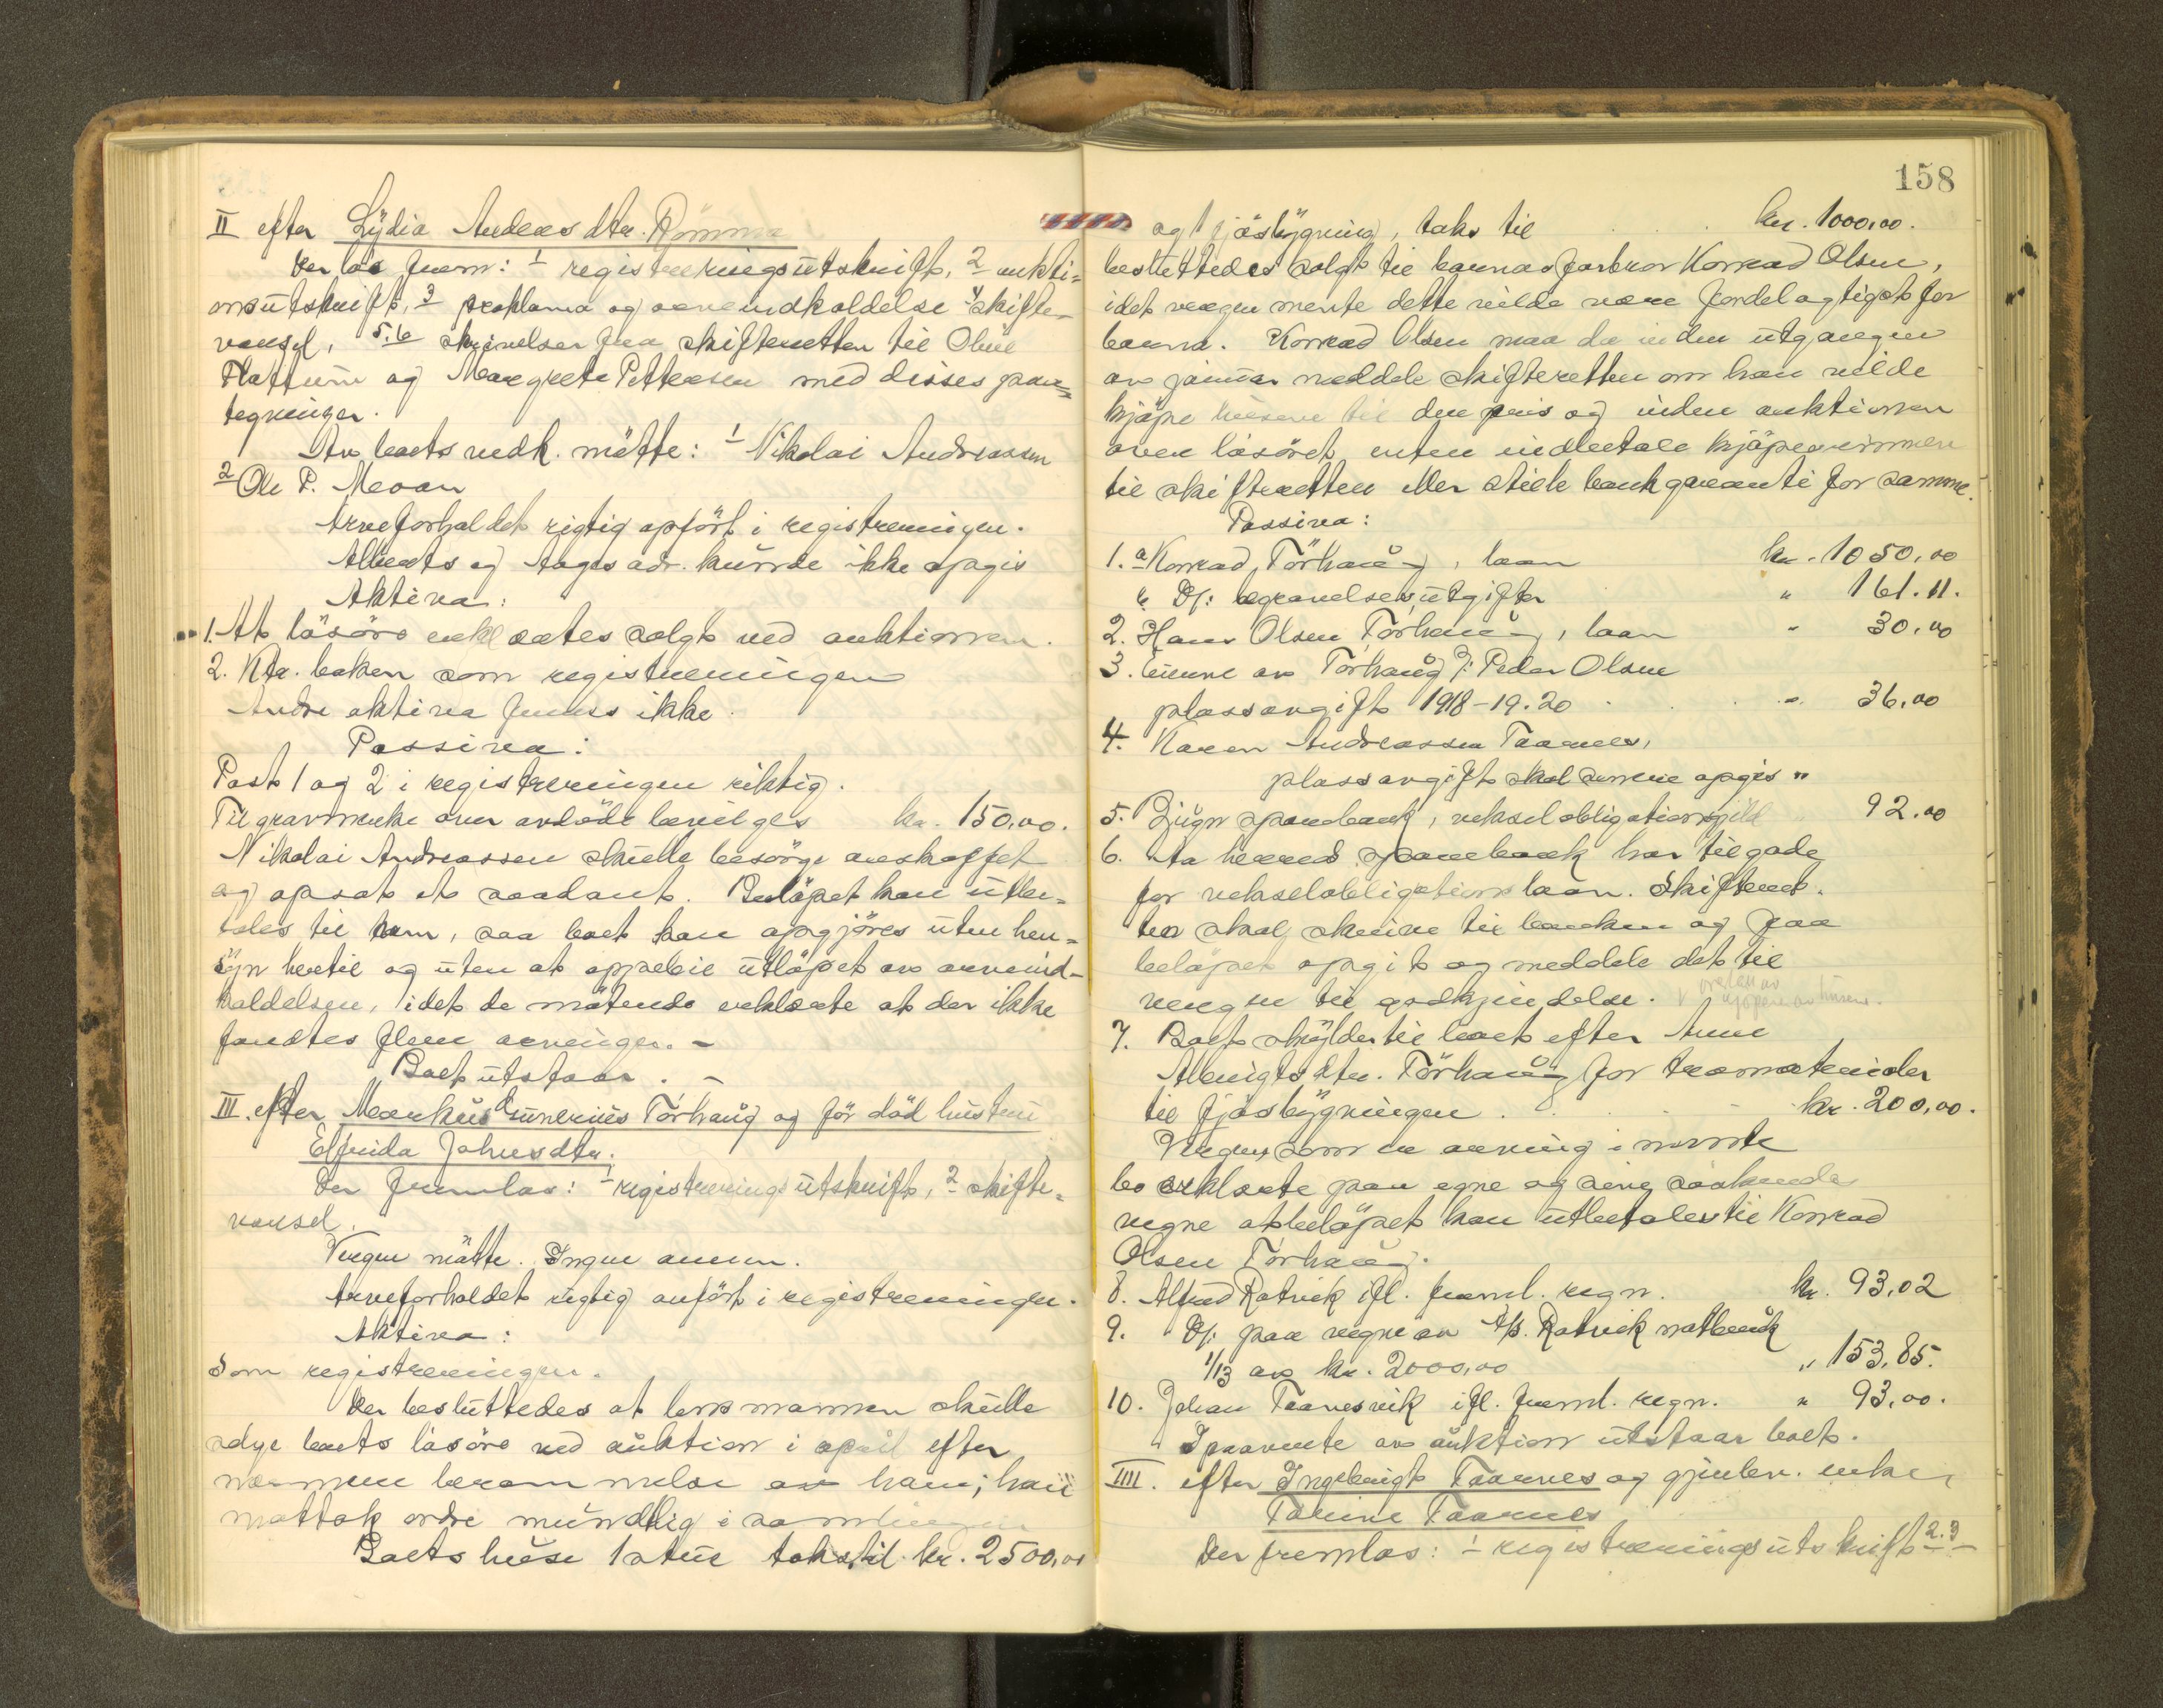 II efter Lydia Andreasdtr. Römma
Der laa frem: 1 registreringsutskrift, 2 aukti=
onsutskrift, 3 proklama og arveindkaldelse 4 skifte-
varsel, 5.6 skrivelser fra skifteretten til Oline
Flattum og Margrete Pettersen med disses paa=
tegninger.
Av boets vedk. mötte: 1 Nikolai Andreassen
2 Ole P. Moan
Arveforholdet rigtig opfört i registreringen.
Alberts og Aages adr. kunde ikke opgis
Aktiva:
1. Alt lösöre erklærtes solgt ved auktionen.
2. Ktr. boken som registreringen
Andre aktiva finnes ikke.
Passiva:
Post 1 og 2 i registreringen riktig.
Til gravmerke over avdöde bevilges kr. 150,00.
Nikolai Andreassen skulle besörge anskaffet
og opsat et saadant. Belöpet kan utbe=
tales til ham, saa boet kan opgjöres uten hen=
syn hertil og uten at oppebie utlöpet av arveind-
kaldelsen, idet de mötende erklærte at der ikke
fandtes flere arvinger. -
Boet utstaar. -
III. efter Markus Gunerius Törhaug og för död hustru
Elfrida Johnsdtr.
Der fremlaa: 1 registreringsutskrift, 2 skifte=
varsel.
Vergen mötte. Ingen annen.
Arveforholdet rigtig anfört i registreringen.
Aktiva:
Som registreringen.
Der besluttedes at lensmannen skulle
selge boets lösöre ved auktion i april efter
nærmere berammelse av ham; han
mottok ordre mundtlig i samlingen
Boets huse 1 stue takst til kr. 2500,00
158
og 1 fjösbygning, takst til kr. 1000,00.
besluttedes solgt til barnas farbror Konrad Olsen,
idet vergen mente dette vilde være fordelagtigst for
barna. Konrad Olsen maa da inden utgangen
av januar meddele skifteretten om han vilde
kjöpe husene til den pris og inden auktionen
over lösöret enten indbetale kjöpesummen
til skifteretten eller stille bankgaranti for samme.
Passiva:
1. a Konrad Törhaug, laan kr. 1050,00
b Ds: begravelsesutgifter " 161.11.
2. Hans Olsen Törhaug, laan " 30,00
3. Eierne av Törhaug v: Peder Olsen
plassavgift 1918-19.20 " 36,00
4. Karen Andreassen Taarnes,
plassavgift skal senere opgis "
5. Rugn sparebank, vekselobligationsgjeld 92.00
6. Aa herred sparebank har tilgode
for vekselobligationslaan. Skifteret-
ten skal skrive til banken og faa
belöpet opgit og meddele det til
vergen til godkjendelse.
7. Boet skylder til boet efter Anne
Albrigtsdtr. Törhaug for træmaterialer
til fjösbygningen kr. 200,00.
Vergen som er arving i nævnte
bo erklærte paa egne og sine söskendes
vegne at belöpet kan utbetales til Konrad
Olsen Törhaug.
8. Alfred Ratvik ifl. freml. regn. kr. 93,02
9. Ds: paa vegne av A/S. Ratvik notbruk
1/13 av kr. 2000,00 " 153,85.
10. Johan Taanesvik ifl. freml. regn. " 93,00.
I paavente av auktion utstaar boet.
IIII. efter Ingebrigt Taarnes og gjenlev. enke,
Taline Taarnes
Der fremlaa: 1 registreringsutskrift 2.3